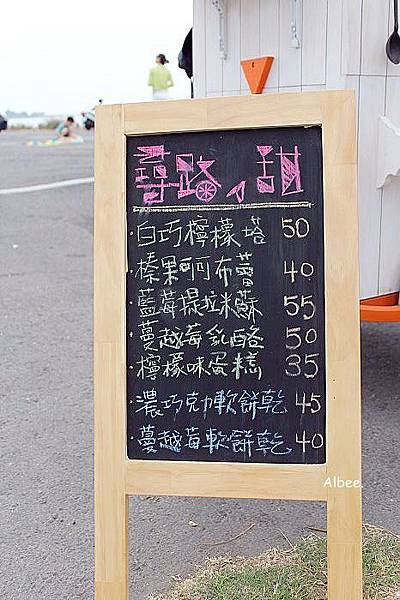 尋路、甜
·白巧檸檬塔 50
·榛果阿布蕾 40
·藍莓提拉米蘇 55
·蔓越莓乳酪 50
·檸檬味蛋糕 35
·濃巧克力軟餅乾 45
·蔓越莓軟餅乾 40
Albee.